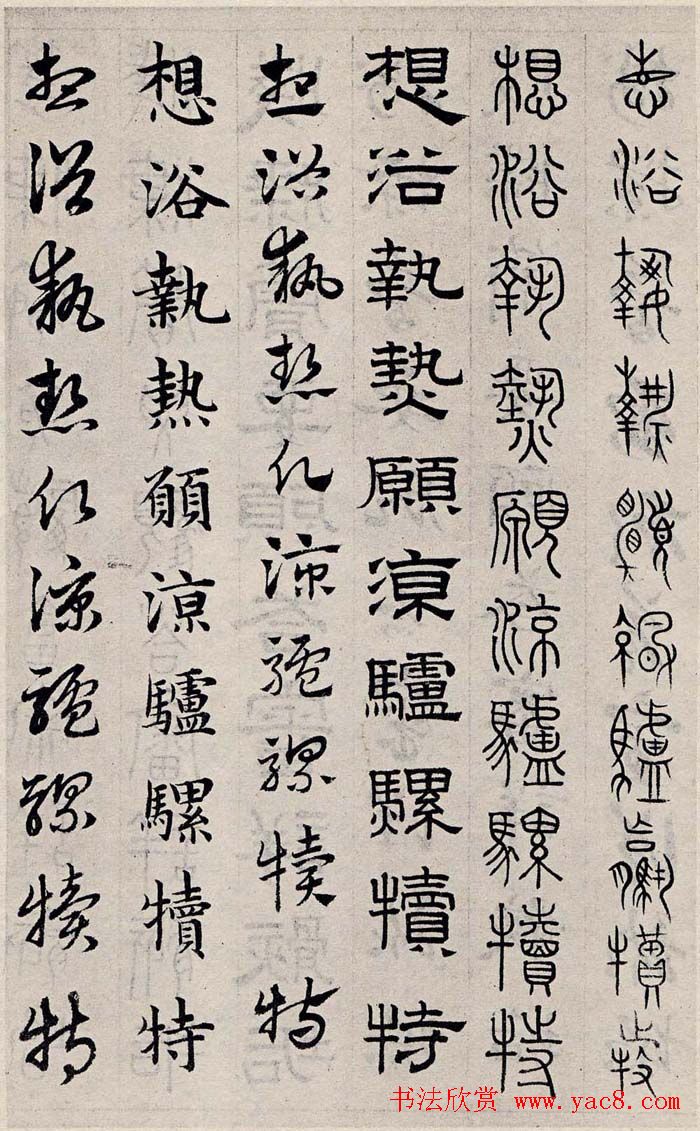 想浴執熱願涼驢騾犢特
想浴執熱願涼驢騾犢特
想浴執熱願涼驢騾犢特
想浴執熱願涼驢騾犢特
想浴執熱願涼驢騾犢特
想浴執熱願涼驢騾犢特
书法欣赏 www.yac8.com